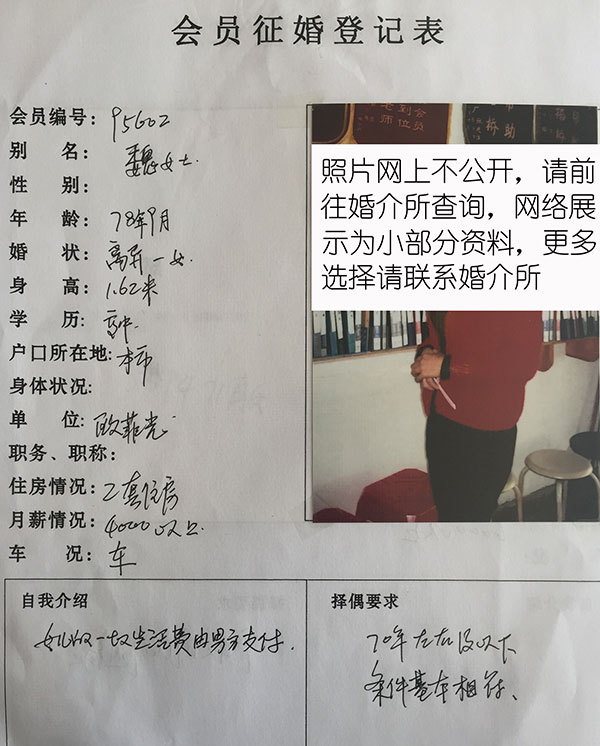 会员征婚登记表
会员编号: 95602
别 名: 魏女士.
性 别:
年 龄: 78年9月
婚 状: 离异一女
身 高: 1.62米
学 历: 高中.
户口所在地: 本市
身体状况:
单 位: 欧菲光
职务、职称:
住房情况: 2套住房
月薪情况: 4000以上.
车 况: 车
老到会
师位员
协助
照片网上不公开，请前
往婚介所查询，网络展
示为小部分资料，更多
选择请联系婚介所
自我介绍
女儿的一切生活费由男方支付.
择偶要求
70年左右及以下
条件基本相符、